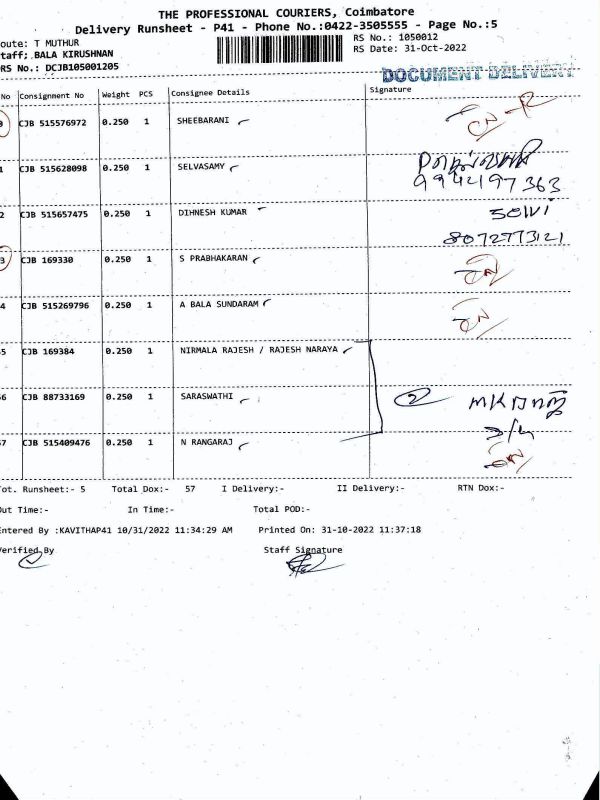 THE PROFESSIONAL COURIERS, Coimbatore
Delivery Runsheet - P41 - Phone No.:0422-3505555 - Page No.:5
oute: T MUTHUR
RS No.: 1050012
taff; BALA KIRUSHNAN
RS Date: 31-Oct-2022
RS No.: DCJB105001205
DOCUMENT DELIVERY
No Consignment No Weight PCS Consignee Details Signature
CJB 515576972 0.250 1 SHEEBARANI
1 CJB 515628098 0.250 1 SELVASAMY
9942197363
2 CJB 515657475 0.250 1 DIHNESH KUMAR selvi
8072773121
3 CJB 169330 0.250 1 S PRABHAKARAN
4 CJB 515269796 0.250 1 A BALA SUNDARAM
5 CJB 169384 0.250 1 NIRMALA RAJESH / RAJESH NARAYA
6 CJB 88733169 0.250 1 SARASWATHI 2
7 CJB 515409476 0.250 1 N RANGARAJ
ot. Runsheet:- 5 Total Dox:- 57 I Delivery:- II Delivery:- RTN Dox:-
ut Time:- In Time:- Total POD:-
ntered By :KAVITHAP41 10/31/2022 11:34:29 AM Printed On: 31-10-2022 11:37:18
erified By Staff Signature